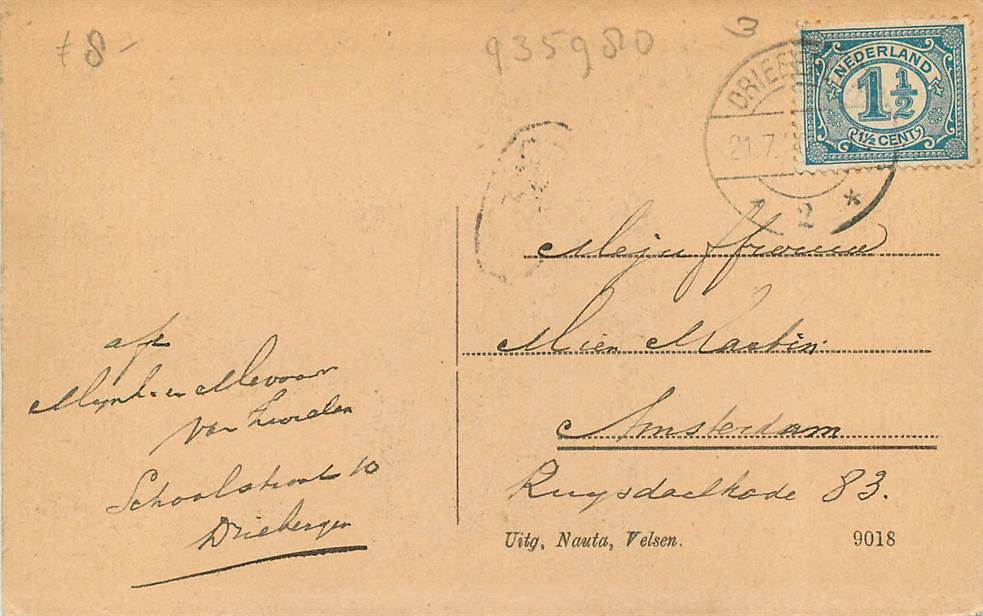 f 8-
935980
3
DRIEB
21.7.
2 *
NEDERLAND
1 1/2
1½ CENT
Mejuffrouw
Mien Martin.
Amsterdam
Ruysdaelkade 83.
afz
Mijnh. en Mevrouw
van
Schoolstraat 10
Driebergen
Uitg, Nauta, Velsen.
9018